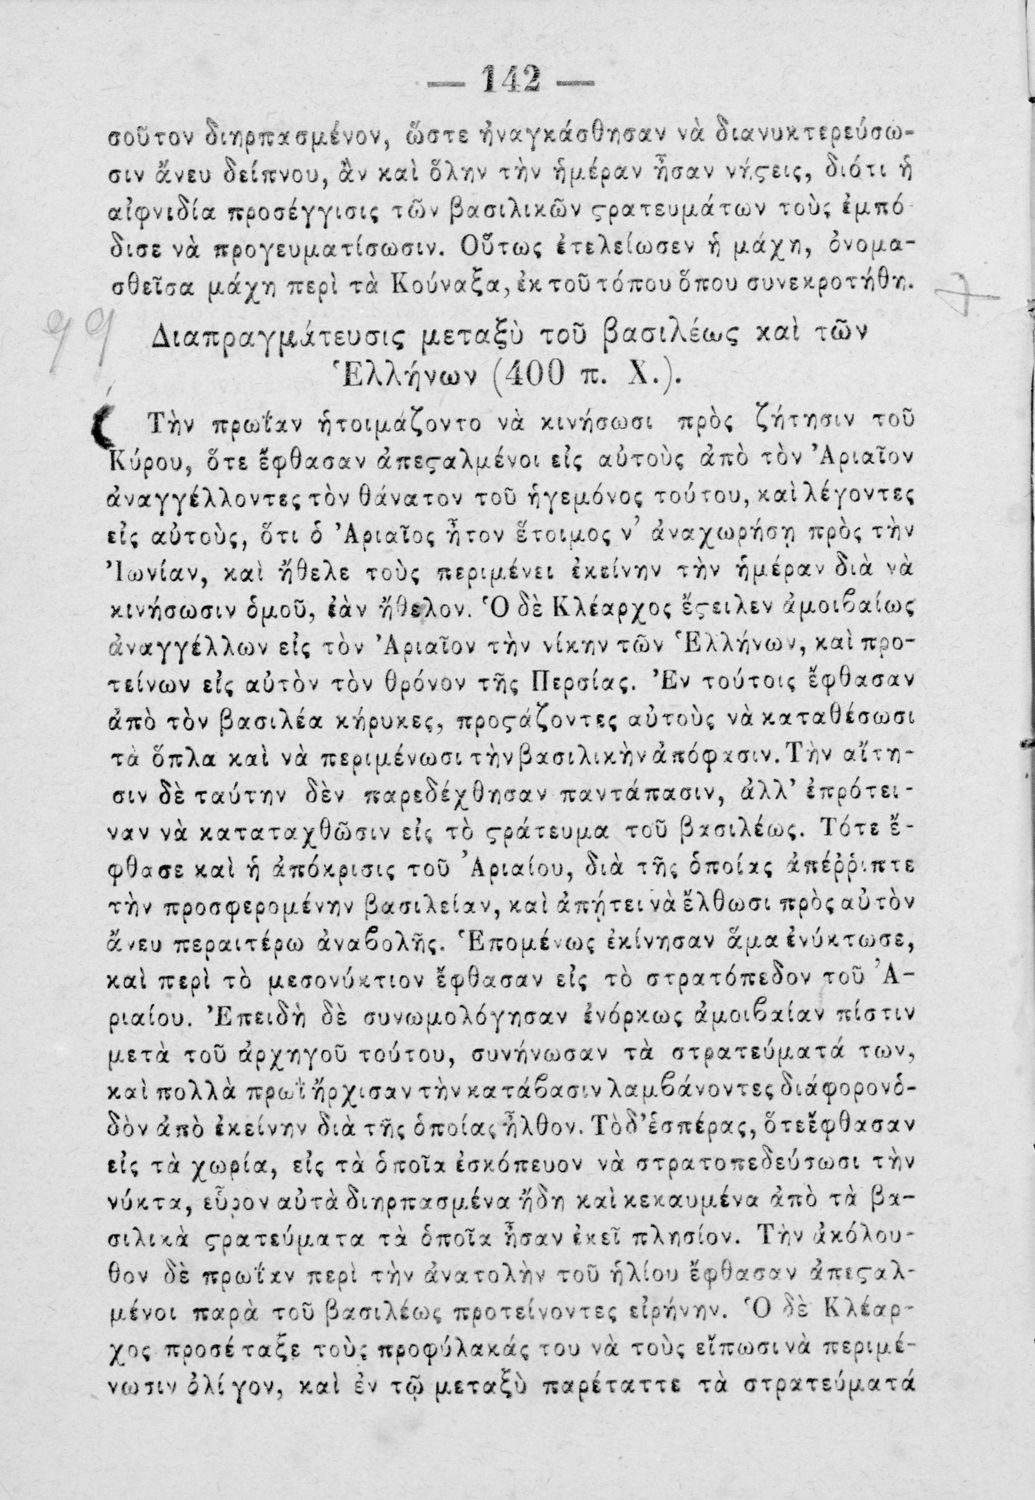 — 142 —
σοῦτον διηρπασμένον, ὥστε ἠναγκάσθησαν νὰ διανυκτερεύσω-
σιν ἄνευ δείπνου, ἂν καὶ ὅλην τὴν ἡμέραν ἦσαν νήϛεις, διότι ἡ
αἰφνιδία προσέγγισις τῶν βασιλικῶν ϛρατευμάτων τοὺς ἐμπό-
δισε νὰ προγευματίσωσιν. Οὕτως ἐτελείωσεν ἡ μάχη, ὀνομα-
σθεῖσα μάχη περὶ τὰ Κούναξα, ἐκ τοῦ τόπου ὅπου συνεκροτήθη.
99
Διαπραγμάτευσις μεταξὺ τοῦ βασιλέως καὶ τῶν
Ἑλλήνων (400 π. Χ.).
Τὴν πρωΐαν ἡτοιμάζοντο νὰ κινήσωσι πρὸς ζήτησιν τοῦ
Κύρου, ὅτε ἔφθασαν ἀπεϛαλμένοι εἰς αὐτοὺς ἀπὸ τὸν Ἀριαῖον
ἀναγγέλλοντες τὸν θάνατον τοῦ ἡγεμόνος τούτου, καὶ λέγοντες
εἰς αὐτοὺς, ὅτι ὁ Ἀριαῖος ἦτον ἕτοιμος ν' ἀναχωρήσῃ πρὸς τὴν
Ἰωνίαν, καὶ ἤθελε τοὺς περιμένει ἐκείνην τὴν ἡμέραν διὰ νὰ
κινήσωσιν ὁμοῦ, ἐὰν ἤθελον. Ὁ δὲ Κλέαρχος ἔϛειλεν ἀμοιβαίως
ἀναγγέλλων εἰς τὸν Ἀριαῖον τὴν νίκην τῶν Ἑλλήνων, καὶ προ-
τείνων εἰς αὐτὸν τὸν θρόνον τῆς Περσίας. Ἐν τούτοις ἔφθασαν
ἀπὸ τὸν βασιλέα κήρυκες, προϛάζοντες αὐτοὺς νὰ καταθέσωσι
τὰ ὅπλα καὶ νὰ περιμένωσι τὴν βασιλικὴν ἀπόφασιν. Τὴν αἴτη-
σιν δὲ ταύτην δὲν παρεδέχθησαν παντάπασιν, ἀλλ' ἐπρότει-
ναν νὰ καταταχθῶσιν εἰς τὸ ϛράτευμα τοῦ βασιλέως. Τότε ἔ-
φθασε καὶ ἡ ἀπόκρισις τοῦ Ἀριαίου, διὰ τῆς ὁποίας ἀπέῤῥιπτε
τὴν προσφερομένην βασιλείαν, καὶ ἀπῄτει νὰ ἔλθωσι πρὸς αὐτὸν
ἄνευ περαιτέρω ἀναβολῆς. Ἑπομένως ἐκίνησαν ἅμα ἐνύκτωσε,
καὶ περὶ τὸ μεσονύκτιον ἔφθασαν εἰς τὸ στρατόπεδον τοῦ Ἀ-
ριαίου. Ἐπειδὴ δὲ συνωμολόγησαν ἐνόρκως ἀμοιβαίαν πίστιν
μετὰ τοῦ ἀρχηγοῦ τούτου, συνήνωσαν τὰ στρατεύματά των,
καὶ πολλὰ πρωῒ ἤρχισαν τὴν κατάβασιν λαμβάνοντες διάφορον ὁ-
δὸν ἀπὸ ἐκείνην διὰ τῆς ὁποίας ἦλθον. Τὸ δ' ἑσπέρας, ὅτε ἔφθασαν
εἰς τὰ χωρία, εἰς τὰ ὁποῖα ἐσκόπευον νὰ στρατοπεδεύσωσι τὴν
νύκτα, εὗρον αὐτὰ διηρπασμένα ἤδη καὶ κεκαυμένα ἀπὸ τὰ βα-
σιλικὰ ϛρατεύματα τὰ ὁποῖα ἦσαν ἐκεῖ πλησίον. Τὴν ἀκόλου-
θον δὲ πρωΐαν περὶ τὴν ἀνατολὴν τοῦ ἡλίου ἔφθασαν ἀπεϛαλ-
μένοι παρὰ τοῦ βασιλέως προτείνοντες εἰρήνην. Ὁ δὲ Κλέαρ-
χος προσέταξε τοὺς προφύλακάς του νὰ τοὺς εἴπωσι νὰ περιμέ-
νωσιν ὀλίγον, καὶ ἐν τῷ μεταξὺ παρέταττε τὰ στρατεύματά